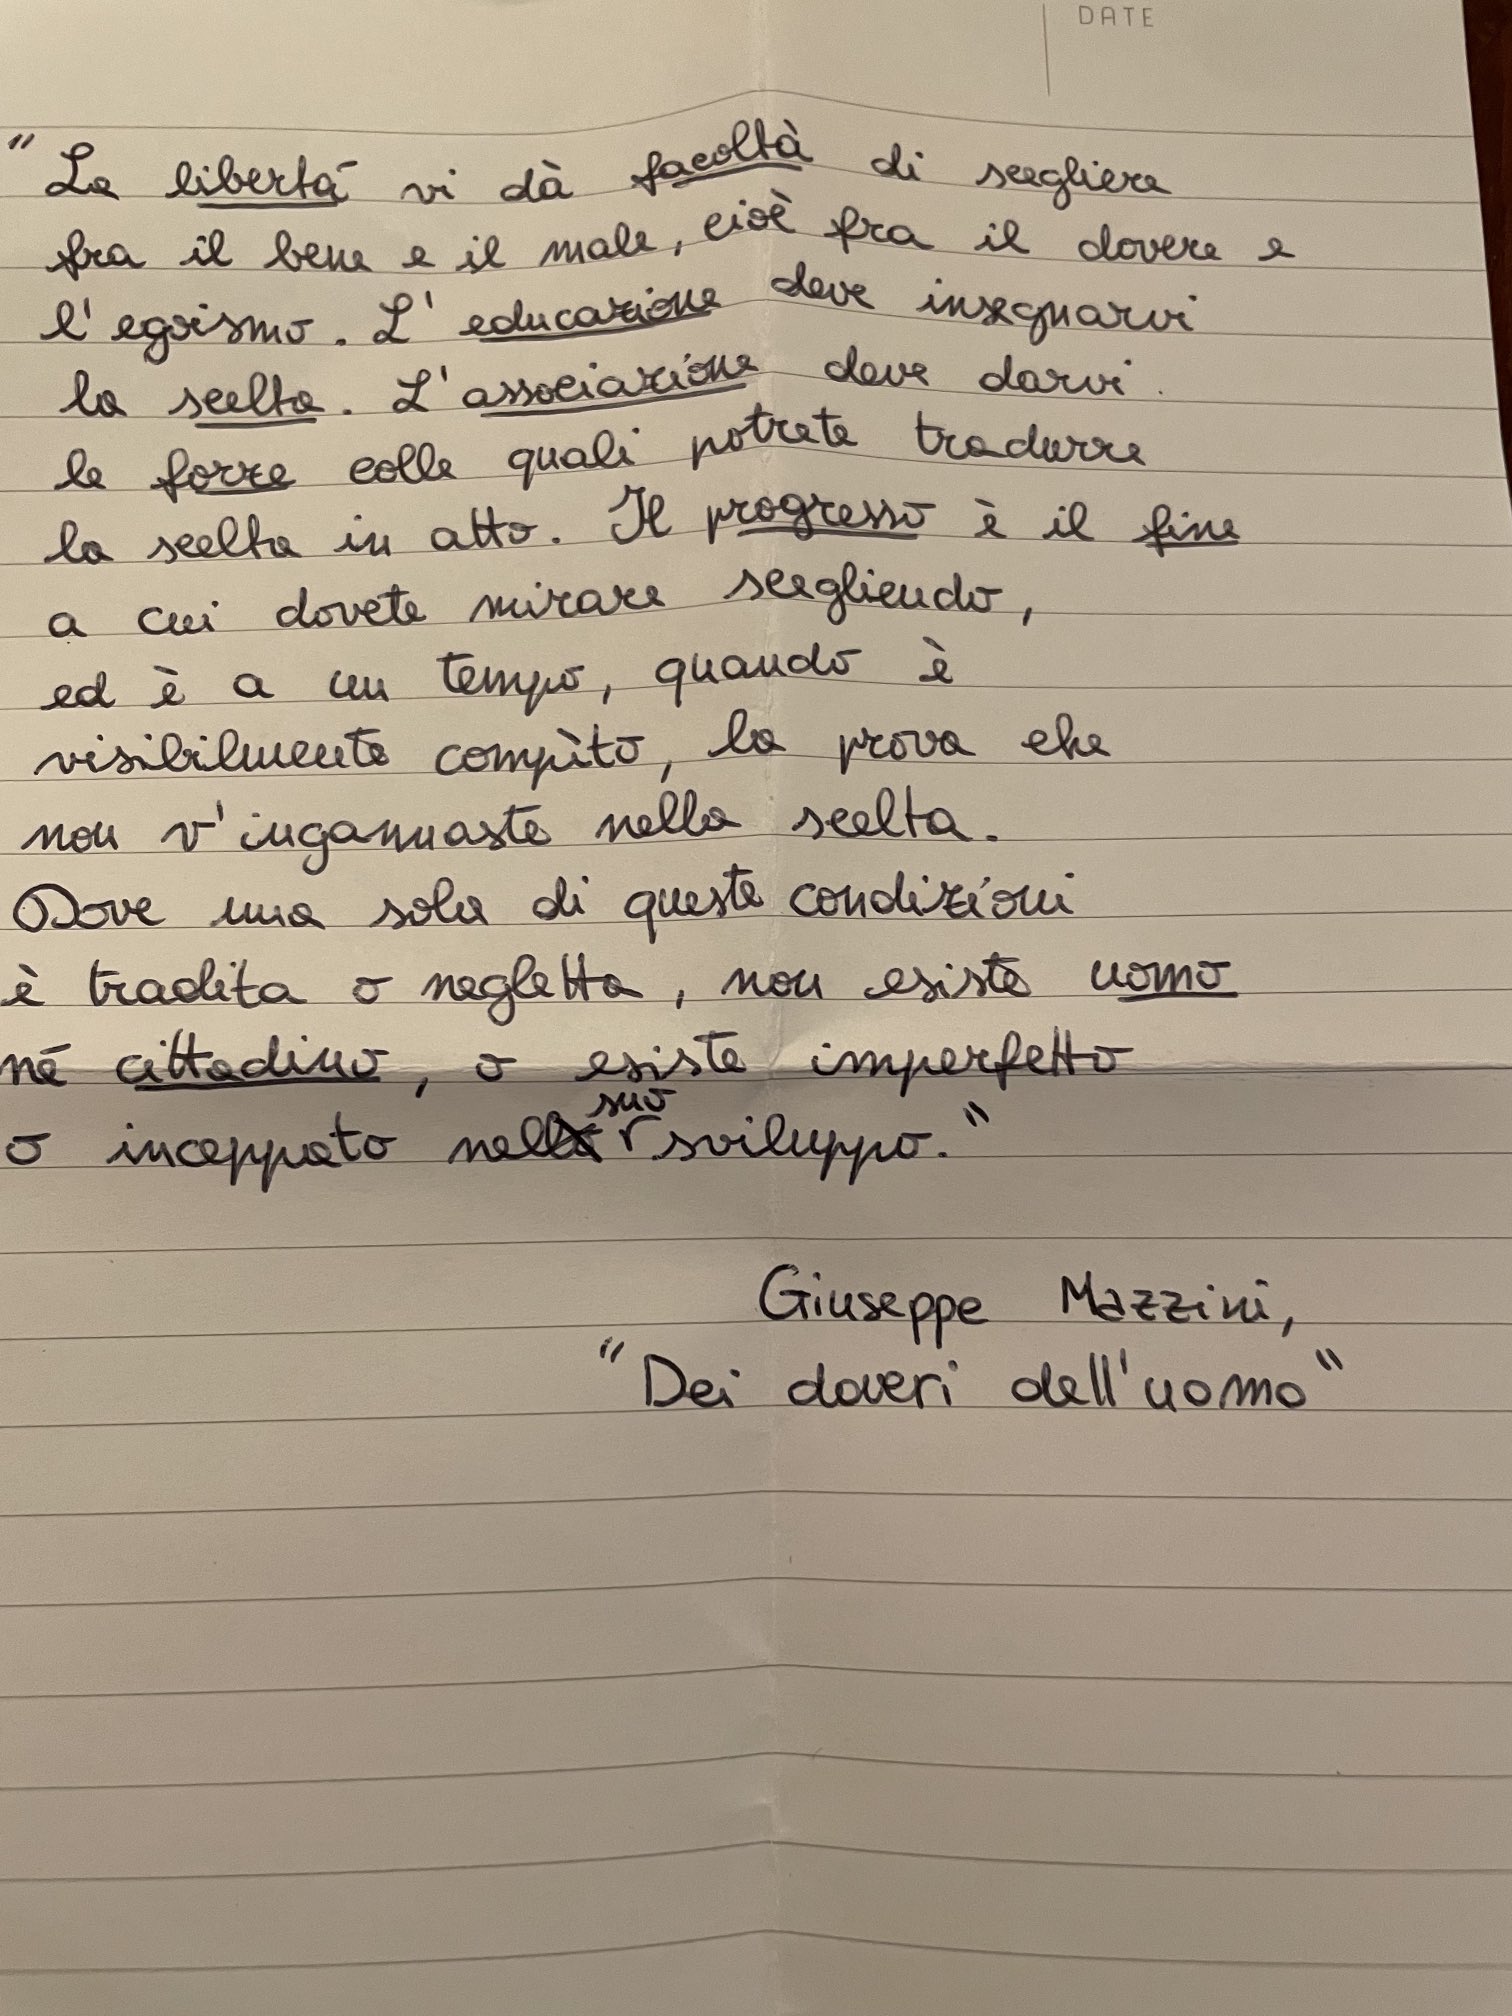 DATE
"La libertà vi dà facoltà di scegliere
fra il bene e il male, cioè fra il dovere e
l'egoismo. L'educazione deve insegnarvi
la scelta. L'associazione deve darvi
le forze colle quali potrete tradurre
la scelta in atto. Il progresso è il fine
a cui dovete mirare scegliendo,
ed è a un tempo, quando è
visibilmente compìto, la prova che
non v'ingannaste nella scelta.
Dove una sola di queste condizioni
è tradita o negletta, non esiste uomo
né cittadino, o esiste imperfetto
o inceppato nel suo sviluppo."
Giuseppe Mazzini,
"Dei doveri dell'uomo"